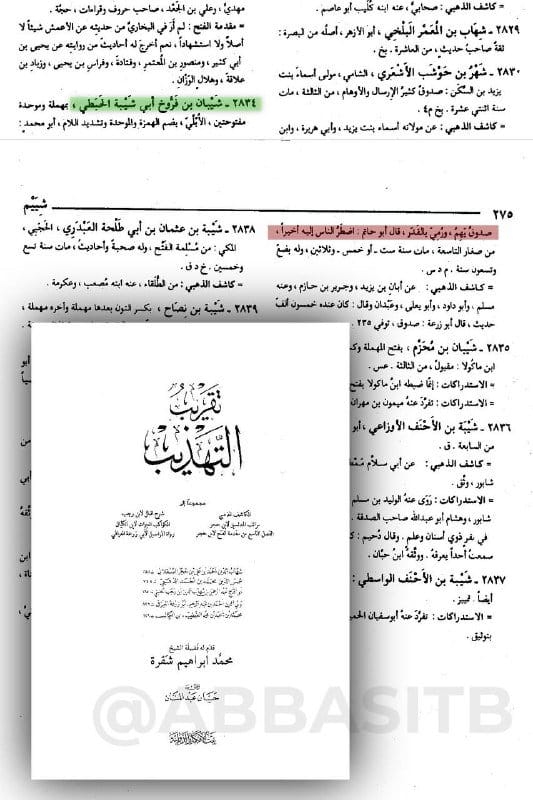 مهديّ ، وعلي بن الجَعْد ، صاحب حروف وقراءات ، حجة .
= مقدمة الفتح : لم أرَ في البخاري من حديثه عن الأعمش شيئاً لا
أصلاً ولا استشهاداً ، نعم أخرج له أحاديث من روايته عن يحيى بن
أبي كثير ، ومنصور بن المُعتمر ، وقتادة ، وفراس بن يحيى ، وزياد بن
علاقة ، وهلال الوَزّان .
٢٨٣٤ ـ شَيْبان بن فَرُّوخ أبي شَيْبة الحَبَطي ، بمهملة وموحدة
مفتوحتين ، الأُبُلّيّ ، بضم الهمزة والموحدة وتشديد اللام ، أبو محمد :
= كاشف الذهبي : صحابيّ ، عنه ابنه كُليب أبو عاصم .
٢٨٢٩ ـ شهاب بن المُعَمَّر البلْخي ، أبو الأزهر ، أصله من البصرة :
ثقةٌ صاحبُ حديثٍ ، من العاشرة . بخ
٢٨٣٠ ـ شَهْرُ بن حَوْشَب الأشعَري ، الشامي ، مولى أسماء بنت
يزيد بن السَّكَن : صدوقٌ كثيرُ الإرسال والأوهام ، من الثالثة ، مات
سنة اثنتي عشرة . بخ م٤ .
= كاشف الذهبي : عن مولاته أسماء بنت يزيد ، وأبي هريرة ، وابن
٢٧٥
شِيَيْم
صدوقٌ يَهِمُ ، ورُميَ بالقَدَر ، قال أبو حاتم : اضطُرَّ الناس إليه أخيراً ،
من صغار التاسعة ، مات سنة ست ـ أو خمس ـ وثلاثين ، وله بضعٌ
وتسعون سنة . م د س .
= كاشف الذهبي : عن أبان بن يزيد ، وجرير بن حازم ، وعنه
مسلم ، وأبو داود ، وأبو يعلى ، وعَبْدان وقال : كان عنده خمسون ألف
حديث ، قال أبو زرعة : صدوق ، توفي ٢٣٥ .
٢٨٣٥ ـ شَيْبان بن مُحَزَّم ، بفتح المهملة
ابن ماكولا : مقبولٌ ، من الثالثة . عس .
= الاستدراكات : إنما ضبطه ابنُ ماكولا بفتح
= الاستدراكات : تفرَّدَ عنهُ ميمون بن مهران
٢٨٣٦ ـ شَيْبة بن الأحْنَف الأوزاعي ، أبو
من السابعة . ق .
= كاشف الذهبي : عن أبي سلّام
شابور ، وثّق .
= الاستدراكات : رَوَى عَنْهُ الوليد بن مسلم
شابور ، وهشام أبو عبدالله صاحب الصدقة
في نفرٍ ذوي أسنان وعلم . وقال دُحيم :
سمعتُ أحداً يعرفهُ . ووثَّقهُ ابنُ حبَّان .
٢٨٣٧ ـ شَيْبة بن الأحْنَف الواسطي :
أيضاً . تمييز .
= الاستدراكات : تفرَّدَ عنهُ أبوسفيان
بتوثيق .
٢٨٣٨ ـ شَيْبة بن عثمان بن أبي طَلْحة العَبْدَري ، الحَجَبي ،
المكي : من مُسْلِمة الفتْح ، وله صحبةٌ وأحاديثُ ، مات سنة تسع
وخمسين . خ د ق .
= كاشف الذهبي : من الطُّلقاء ، عنه ابنه مُصعب ، وعكرمة .
٢٨٣٩ ـ شَيْبة بن نِصَاح ، بكسر النون بعدها مهملة وآخره مهملة ،
تقريب
التهذيب
مجموعاً إلى
قدم له فضيلة الشيخ
محمد ابراهيم شقرة
حسان عبد المنان
بيت الأفكار الدولية
@ABBASITB